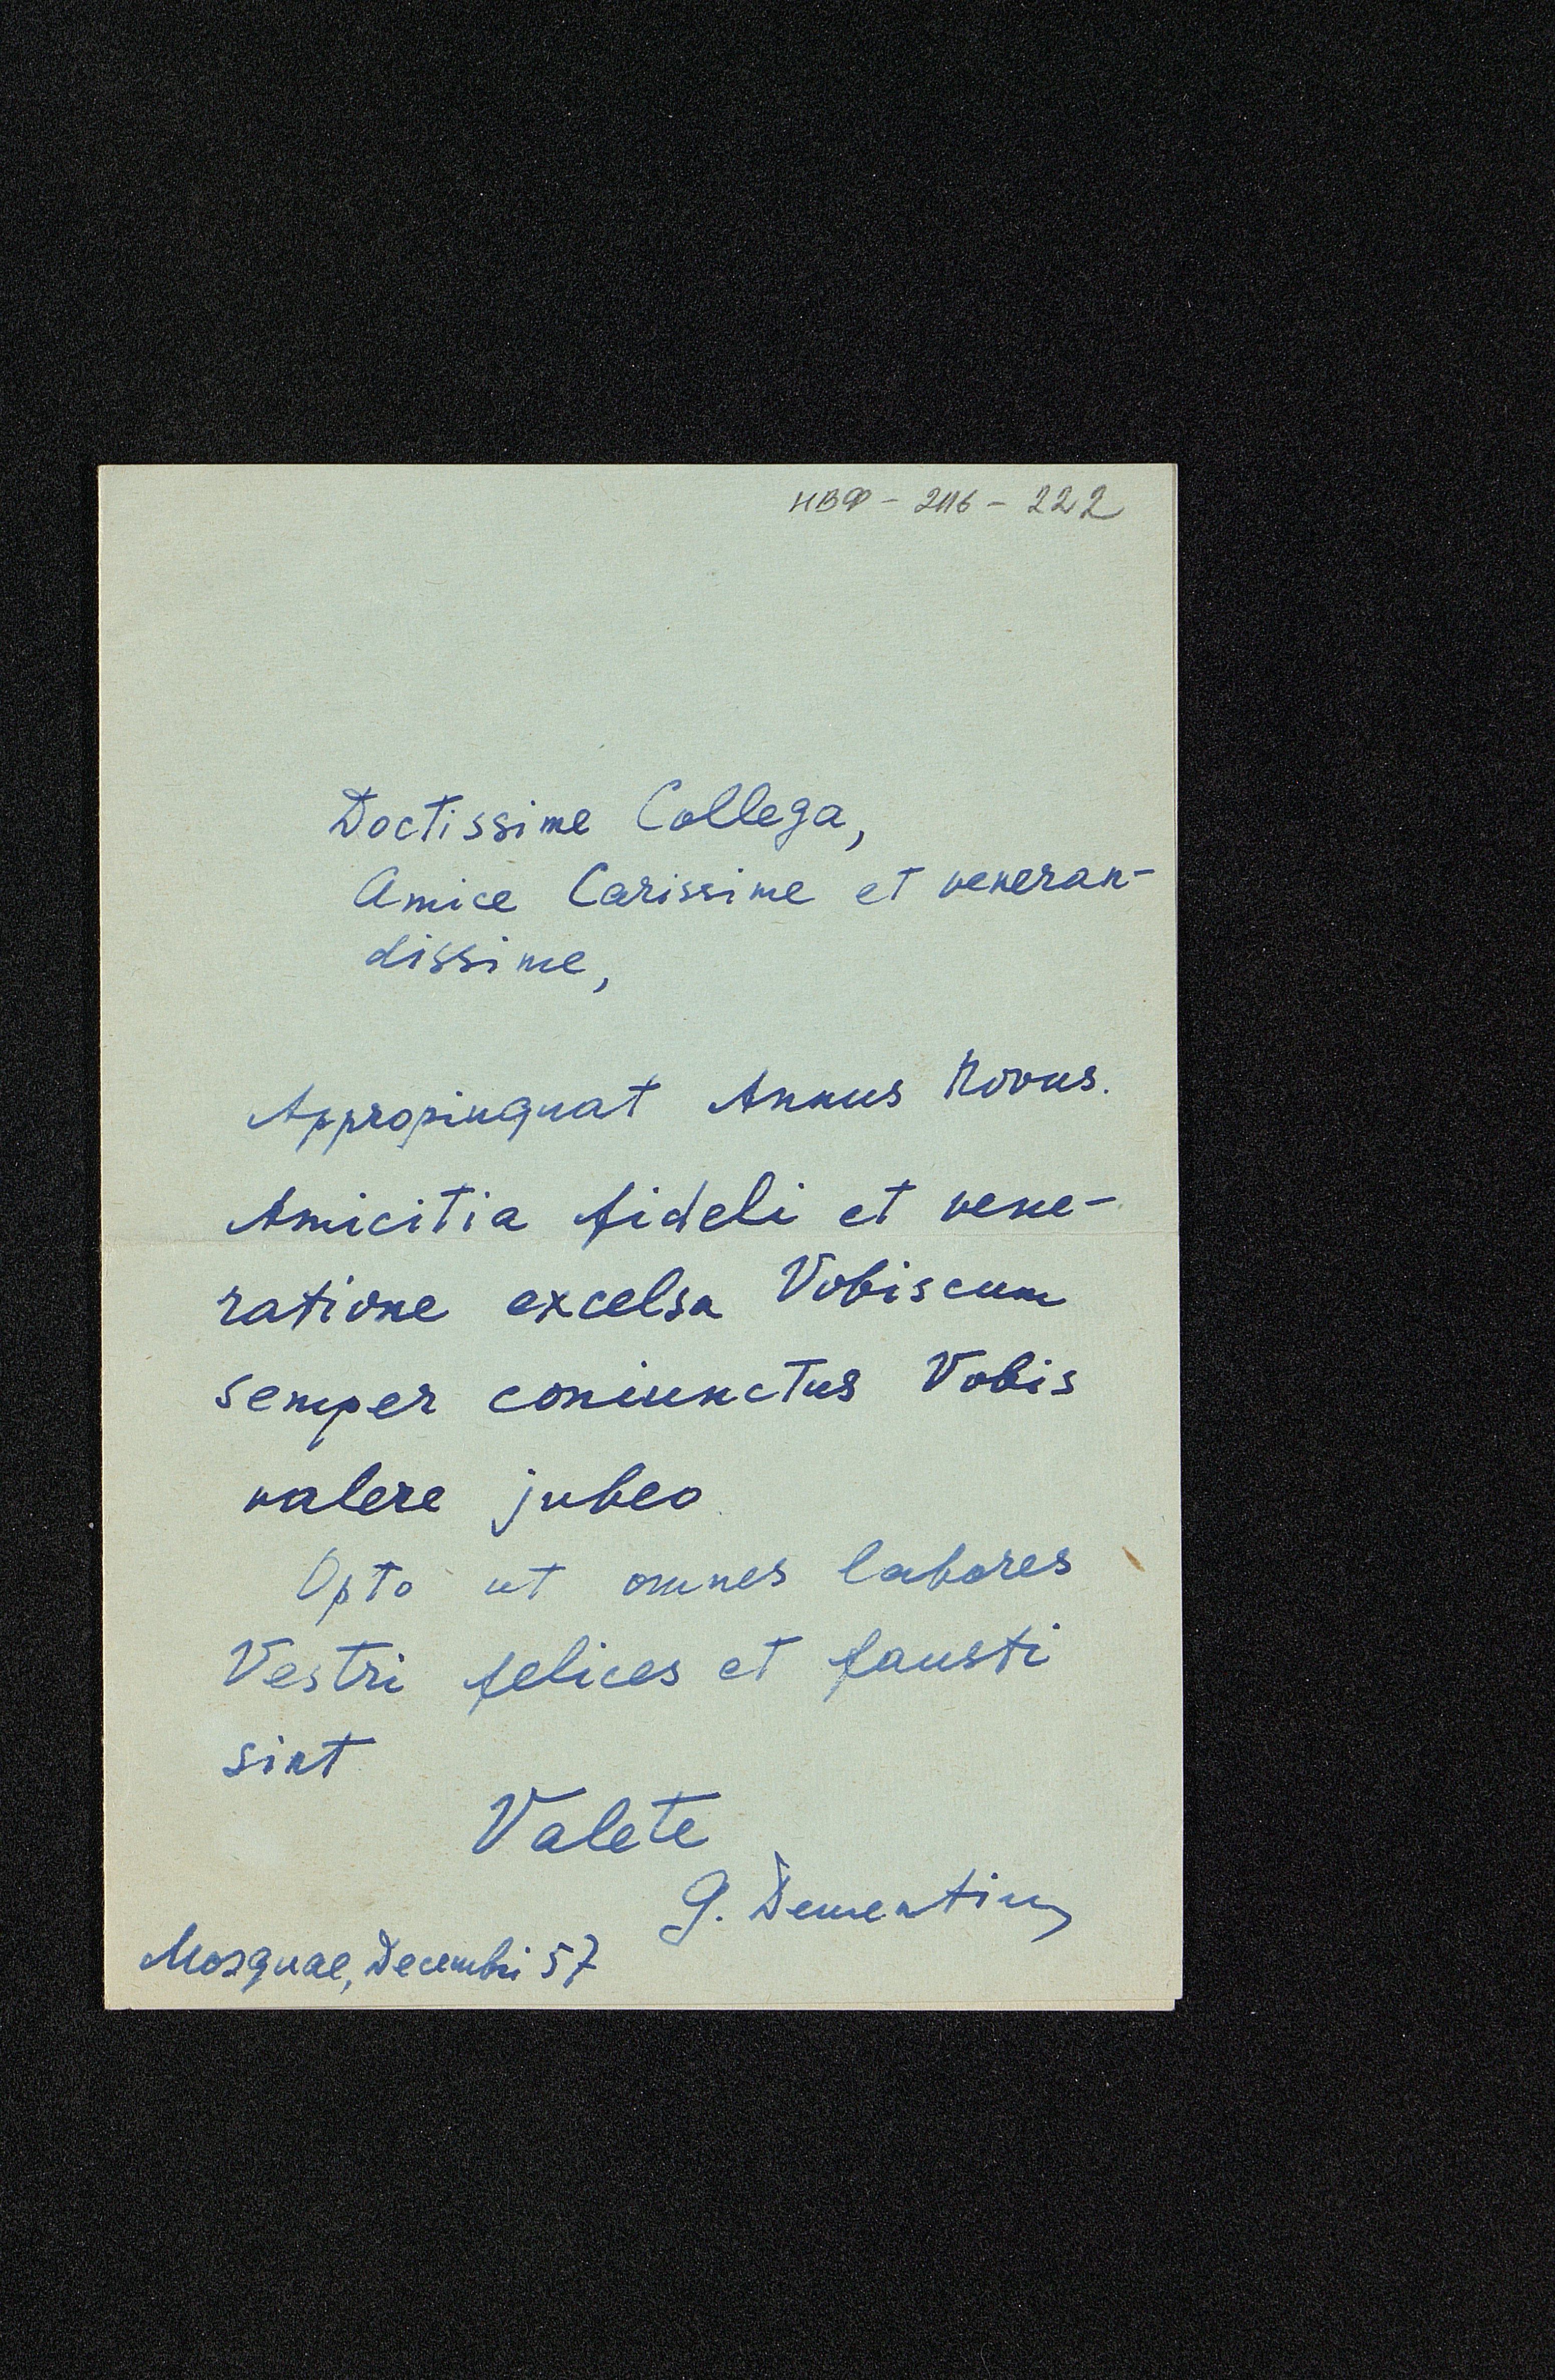 НВФ - 2116 - 222
Doctissime Collega,
Amice Carissime et veneran-
dissime,
Appropinquat Annus Novus.
Amicitia fideli et vene-
ratione excelsa Vobiscum
semper coniunctus Vobis
valere jubeo
Opto ut omnes labores
Vestri felices et fausti
sint
Valete
G. Dementiev
Mosquae, Decembri 57